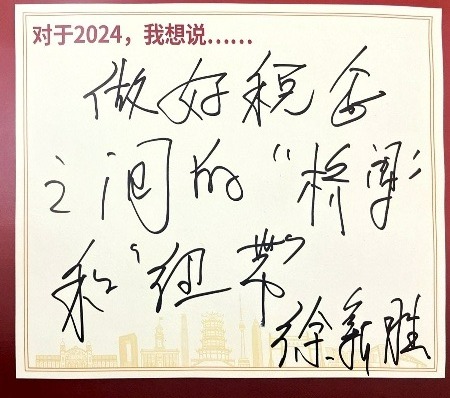 对于2024，我想说……
做好税企
之间的“桥梁”
和“纽带”
徐新胜